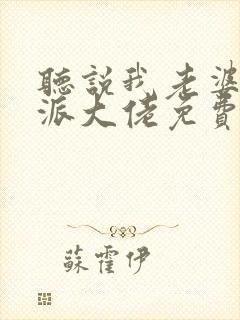 聽說我老婆
派大佬免費
蘇霍伊